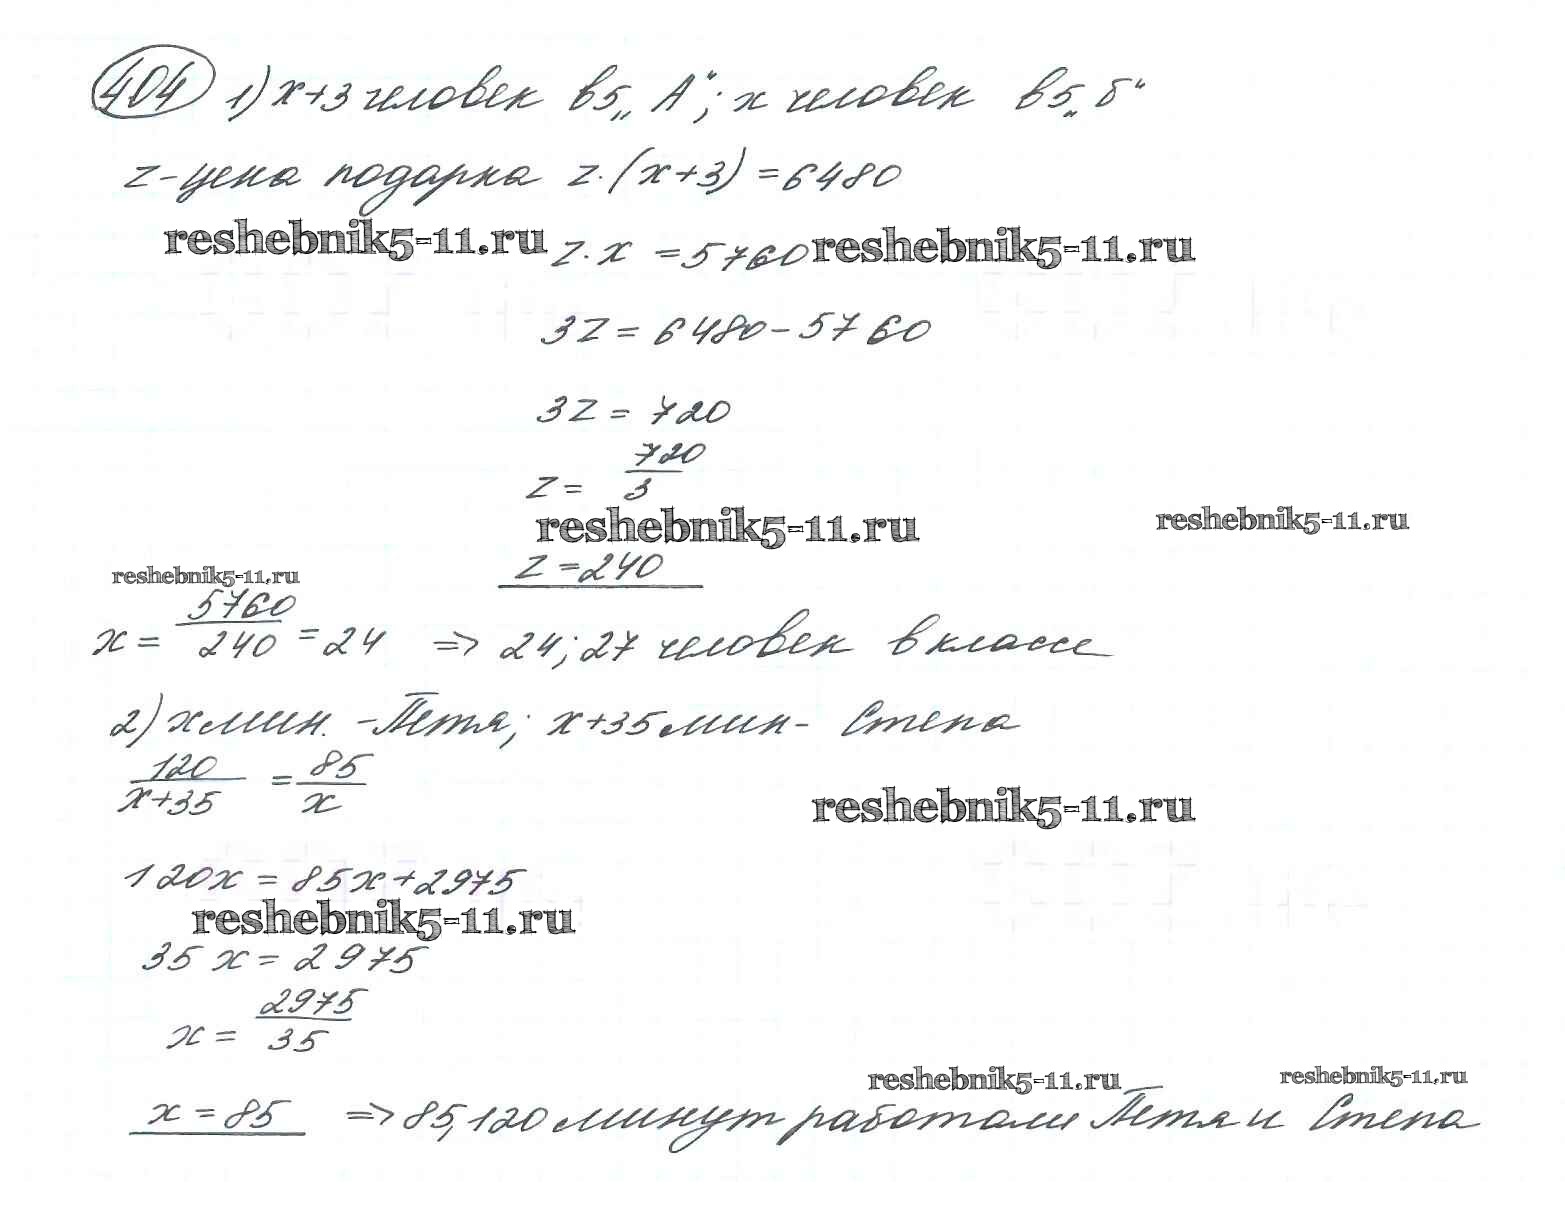 404 1) x+3 человек в 5 „А“; x человек в 5 „б“
z - цена подарка z·(x+3) = 6480
reshebnik5-11.ru z·x = 5760 reshebnik5-11.ru
3z = 6480 - 5760
3z = 720
z = 720/3
reshebnik5-11.ru reshebnik5-11.ru
z = 240
reshebnik5-11.ru
x = 5760/240 = 24 => 24; 27 человек в классе
2) x мин. - Петя; x+35 мин - Степа
120/(x+35) = 85/x
reshebnik5-11.ru
120x = 85x+2975
reshebnik5-11.ru
35x = 2975
x = 2975/35
reshebnik5-11.ru reshebnik5-11.ru
x = 85 => 85, 120 минут работали Петя и Степа